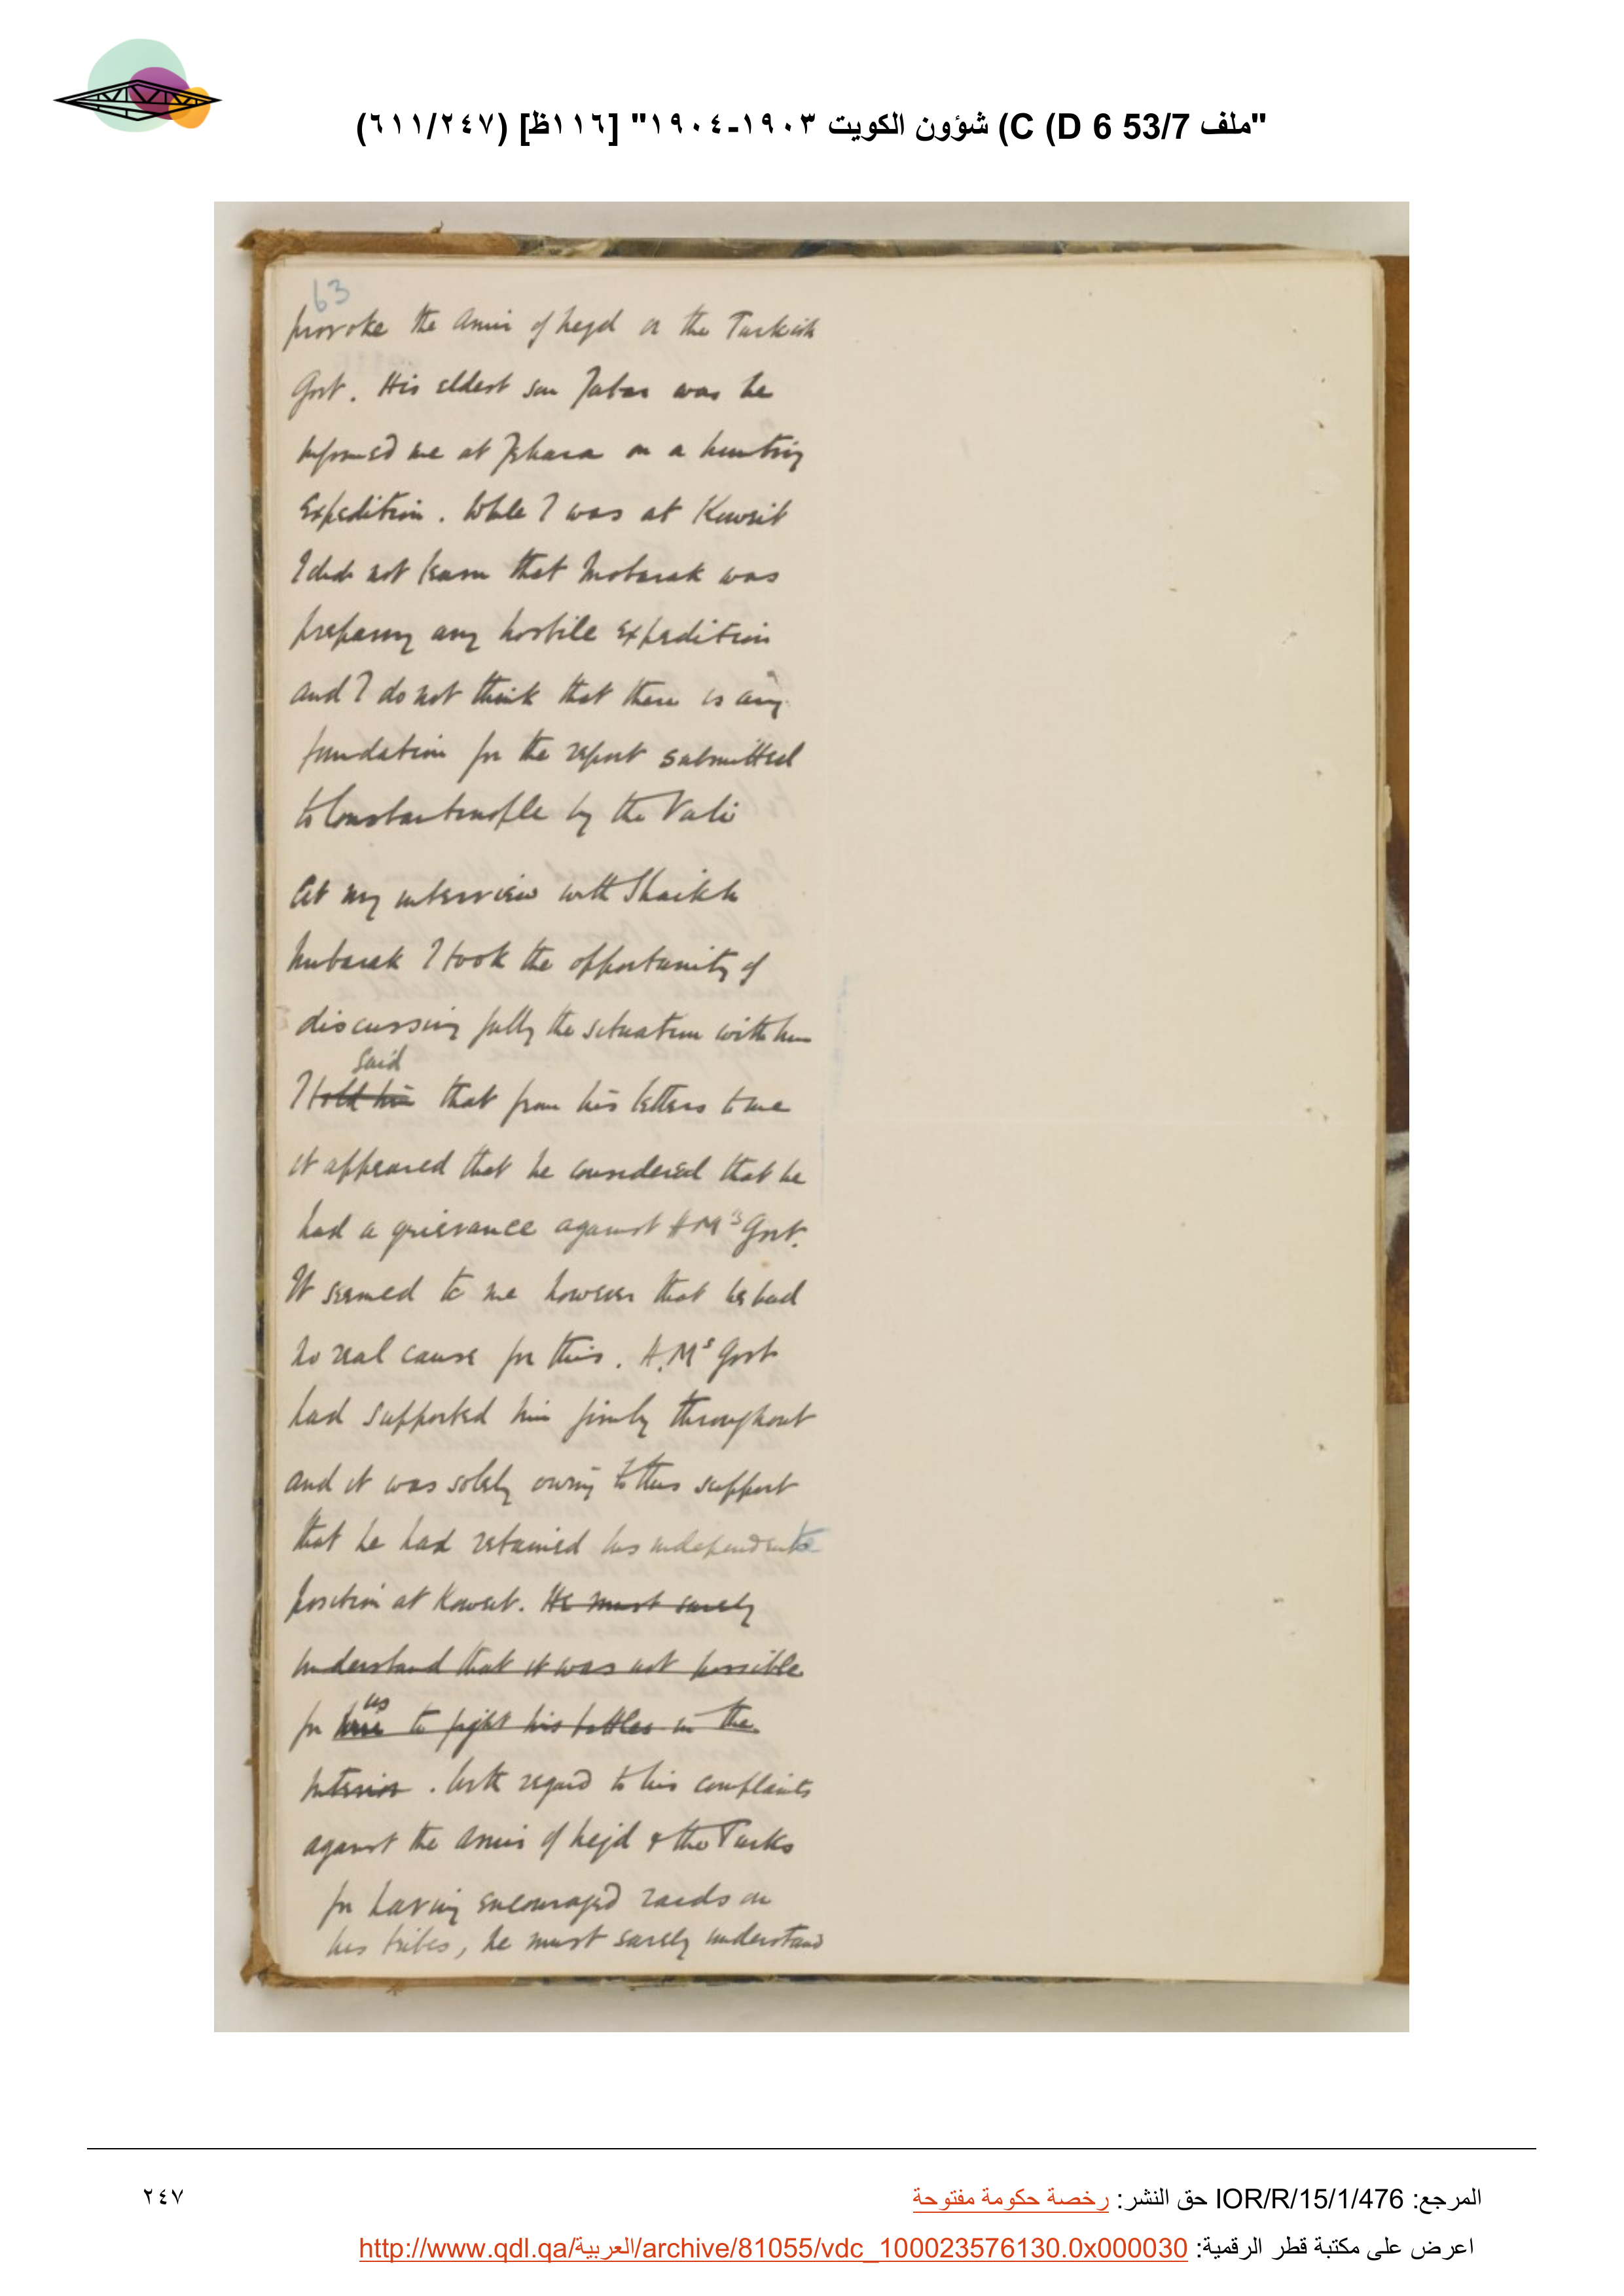 "ملف 53/7 C (D 6) شؤون الكويت ١٩٠٣-١٩٠٤" [١١٦ظ] (٦١١/٢٤٧)
63
provoke the Amir of Nejd or the Turkish
Govt. His eldest son Jabar was he
informed me at Jehara on a hunting
Expedition. While I was at Koweit
I did not learn that Mobarak was
preparing any hostile expedition
and I do not think that there is any
foundation for the report submitted
to Constantinople by the Vali
At my interview with Shaikh
Mubarak I took the opportunity of
discussing fully the situation with him
said
I told him that from his letters to me
it appeared that he considered that he
had a grievance against H M's Govt.
It seemed to me however that he had
no real cause for this. H.M's Govt
had supported him firmly throughout
and it was solely owing to this support
that he had retained his independent
position at Koweit. He must surely
understand that it was not possible
us
for to fight his battles in the
interior. With regard to his complaints
against the Amir of Nejd & the Turks
for having encouraged raids on
his tribes, he must surely understand
المرجع: IOR/R/15/1/476 حق النشر: رخصة حكومة مفتوحة
٢٤٧
اعرض على مكتبة قطر الرقمية: http://www.qdl.qa/العربية/archive/81055/vdc_100023576130.0x000030